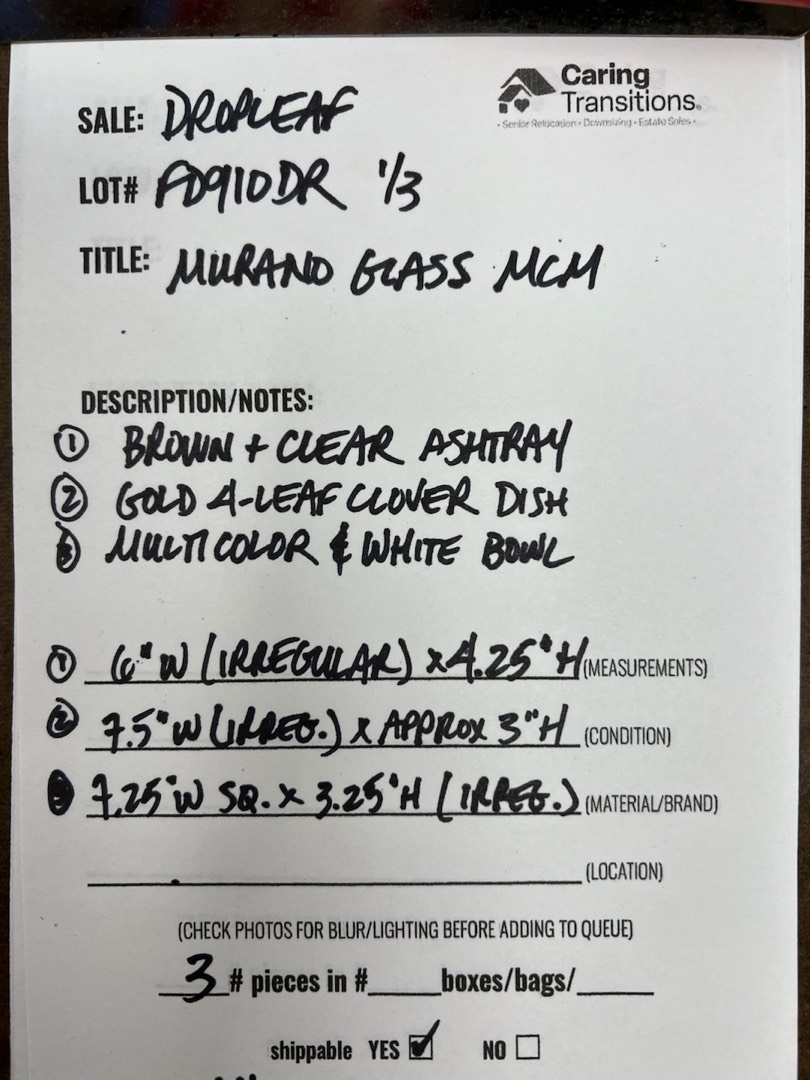 Caring
Transitions®
• Senior Relocation • Downsizing • Estate Sales •
SALE: DROPLEAF
LOT# FD910DR 1/3
TITLE: MURANO GLASS MCM
DESCRIPTION/NOTES:
① BROWN + CLEAR ASHTRAY
② GOLD 4-LEAF CLOVER DISH
③ MULTICOLOR & WHITE BOWL
① 6" W (IRREGULAR) x 4.25" H (MEASUREMENTS)
② 7.5" W (IRREG.) x APPROX 3" H (CONDITION)
7.25" W SQ. x 3.25" H (IRREG.) (MATERIAL/BRAND)
(LOCATION)
(CHECK PHOTOS FOR BLUR/LIGHTING BEFORE ADDING TO QUEUE)
3 # pieces in #____ boxes/bags/____
shippable YES ☑ NO ☐